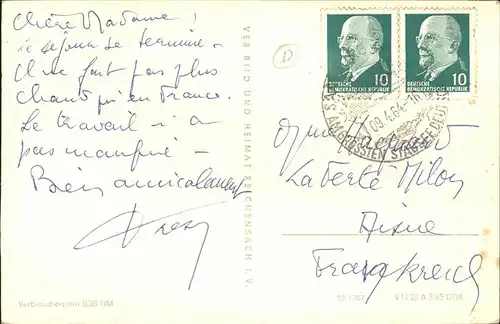 Chère Madame !
séjour se termine -
Il ne fait pas plus
chaud qu'en France.
Le travail n'a
pas manqué -
Bien amicalement
VERBILD UND HEIMAT REICHENBACH I. V.
D
DEUTSCHE
DEMOKRATISCHE REPUBLIK 10
DEUTSCHE
DEMOKRATISCHE REPUBLIK 10
09.4.64-10
AM GRÖSSTEN STAUSEE
La Ferté Milon
Aisne
Frankreich
Verbraucherpreis 0,20 DM
DDR